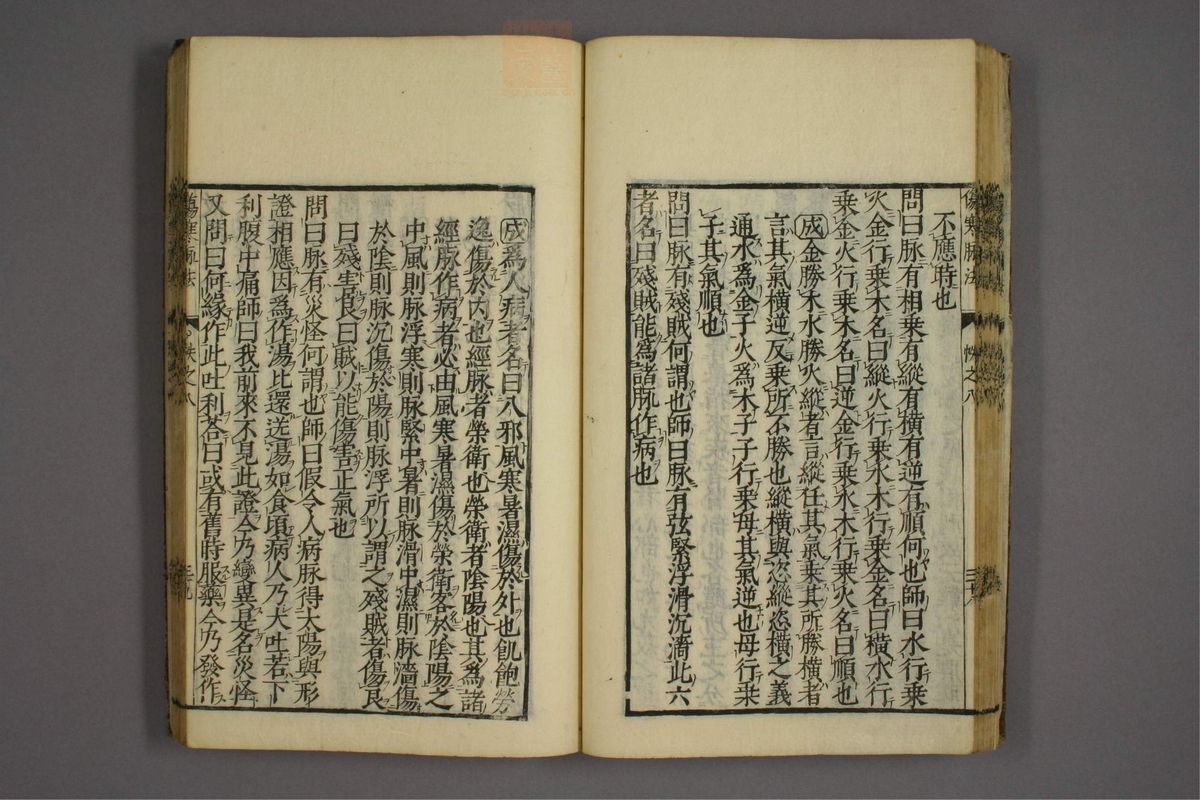 傷寒脉法
帙之八
三十八
不應時也
問曰脉有相乗有縱有横有逆有順何也師曰水行乗
火金行乗木名曰縱火行乗水木行乗金名曰横水行
乗金火行乗木名曰逆金行乗水木行乗火名曰順也
成金勝木水勝火縱者言縱任其氣乗其所勝横者
言其氣横逆反乗所不勝也縱横與恣縱恣横之義
通水爲金子火爲木子子行乗母其氣逆也母行乗
子其氣順也
問曰脉有殘賊何謂也師曰脉有弦緊浮滑沉濇此六
者名曰殘賊能爲諸脉作病也
成爲人病者名曰八邪風寒暑濕傷於外也飢飽勞
逸傷於内也經脉者榮衛也榮衛者陰陽也其爲諸
經脉作病者必由風寒暑濕傷於榮衛客於陰陽之
中風則脉浮寒則脉緊中暑則脉滑中濕則脉濇傷
於陰則脉沉傷於陽則脉浮所以謂之殘賊者傷良
曰殘害良曰賊以能傷害正氣也
問曰脉有災怪何謂也師曰假令人病脉得太陽與形
證相應因爲作湯比還送湯如食頃病人乃大吐若下
利腹中痛師曰我前來不見此證今乃變異是名災怪
又問曰何緣作此吐利荅曰或有舊時服藥今乃發作
傷寒脉法
帙之八
三十九